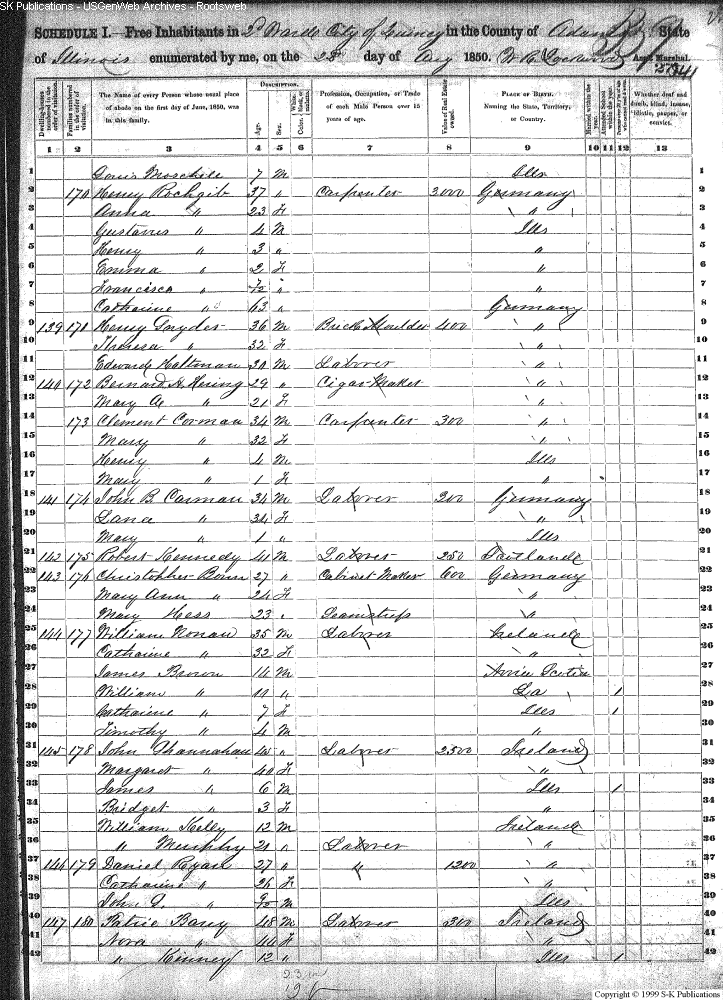 SK Publications - USGenWeb Archives - Rootsweb
SCHEDULE I.—Free Inhabitants in 2d Ward City of Quincy in the County of Adams State
of Illinois enumerated by me, on the 28 day of Aug 1850. Ass't Marshal.
Dwelling-houses numbered in the order of visitation. Families numbered in the order of visitation. The Name of every Person whose usual place of abode on the first day of June, 1850, was in this family. DESCRIPTION. Age. Sex. Color, White, black, or mulatto. Profession, Occupation, or Trade of each Male Person over 15 years of age. Value of Real Estate owned. PLACE OF BIRTH. Naming the State, Territory, or Country. Married within the year. Attended School within the year. Whether deaf and dumb, blind, insane, idiotic, pauper, or convict.
1 2 3 4 5 6 7 8 9 10 11 12 13
1 Louis 7 M Ills 1
2 170 Henry Rochgib 37 " Carpenter 3000 Germany 2
3 Anna " 23 F " 3
4 Gustavus " 4 M Ills 4
5 Henry " 3 " " 5
6 Emma " 2 F " 6
7 Francisca " " " 7
8 Catharine " 63 " Germany 8
9 139 171 Henry Snyder 36 M Brick Moulder 400 " 9
10 Theresa " 32 F " 10
11 Edward Haltman 30 M Laborer " 11
12 140 172 Bernard H. Hering 29 " Cigar Maker " 12
13 Mary A " 21 F " 13
14 173 Clement Corman 34 M Carpenter 300 " 14
15 Mary " 32 F " 15
16 Henry " 4 M Ills 16
17 Mary " 1 F " 17
18 141 174 John B. Carman 34 M Laborer 200 Germany 18
19 Lana " 34 F " 19
20 Mary " 1 " Ills 20
21 142 175 Robert Kennedy 41 M Laborer 250 21
22 143 176 Christopher 27 " Cabinet Maker 600 Germany 22
23 Mary Ann " 24 F " 23
24 Mary Hess 23 " Seamstress " 24
25 144 177 William Nonan 35 M Laborer Ireland 25
26 Catharine " 32 F " 26
27 James Brown 14 M Scotia 27
28 William " 11 " La 1 28
29 Catharine " 7 F Ills 1 29
30 Timothy " 4 M " 30
31 145 178 John Shannahan 45 " Laborer 2500 Ireland 31
32 Margaret " 40 F " 32
33 James " 6 M Ills 1 33
34 Bridget " 3 F " 34
35 William Kelly 12 M Ireland 35
36 " Murphy 21 " Laborer " 36
37 146 179 Daniel Ryan 27 " " 1200 " 37
38 Catharine " 26 F " 38
39 John " M Ills 39
40 147 180 Patric 48 M Laborer 300 Ireland 40
41 Nora " 44 F " 41
42 " Kinney 12 " Ills 1 42
23 m
19 f
Copyright © 1999 S-K Publications